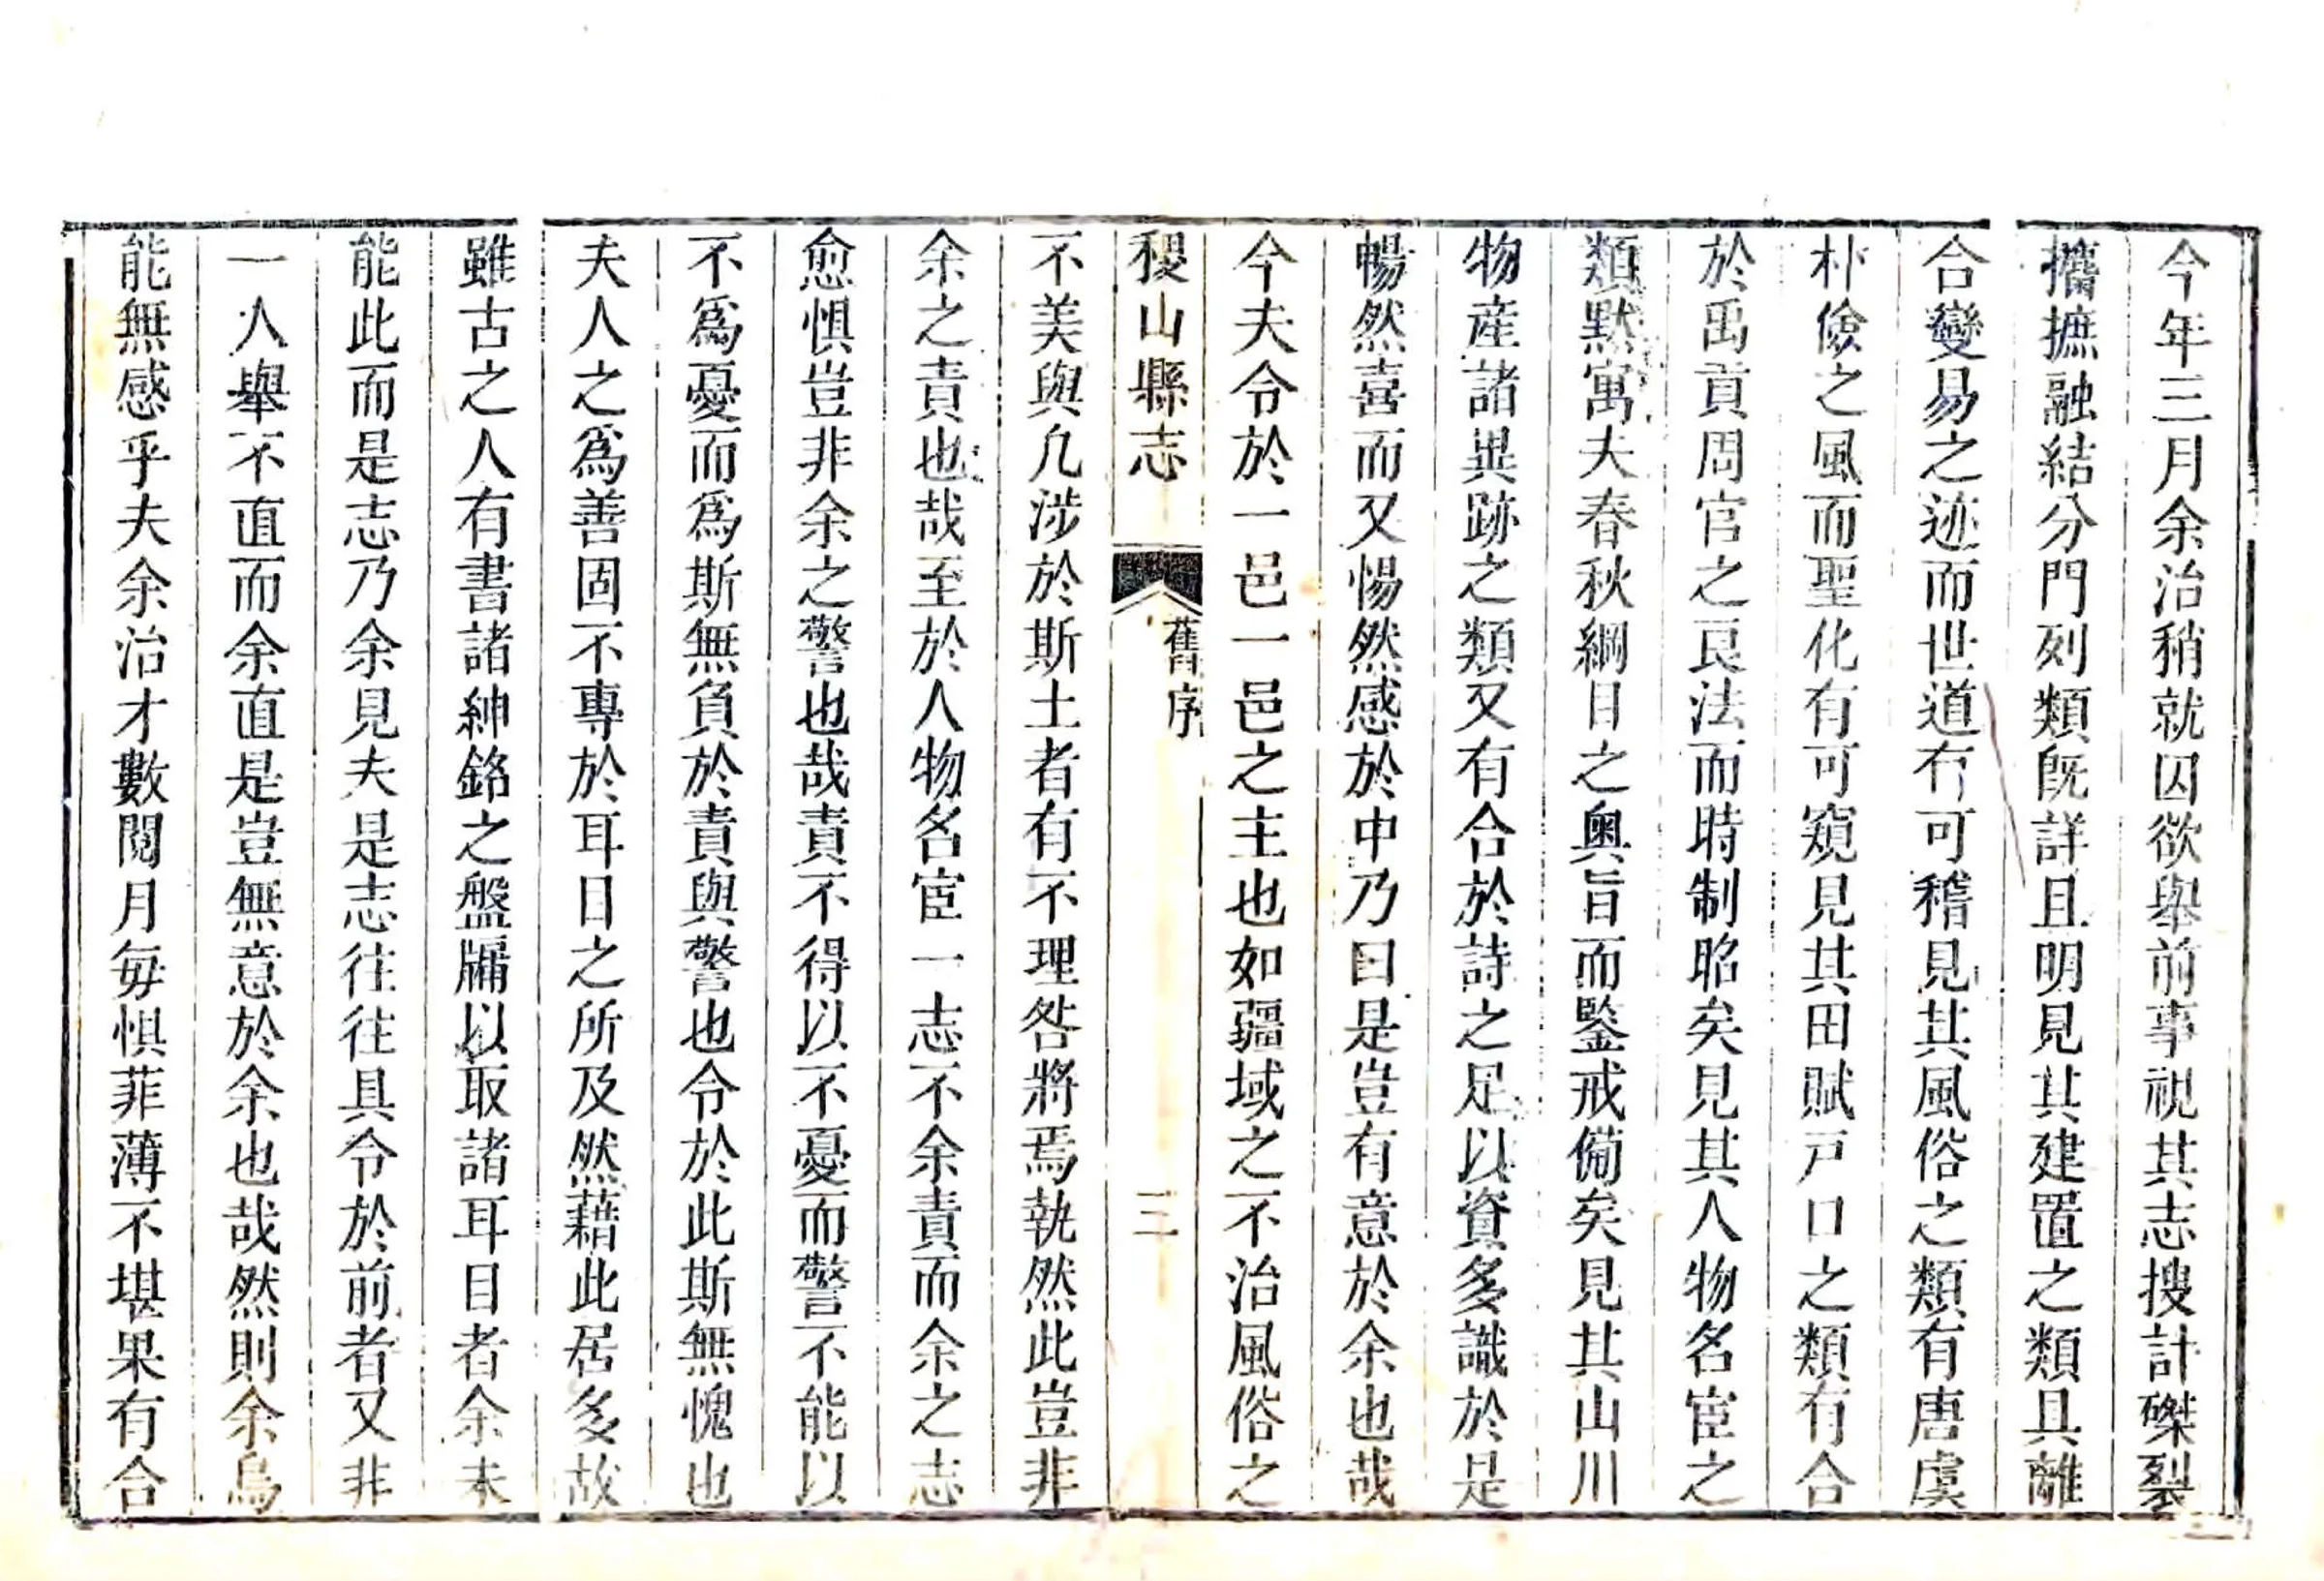 今年三月余治稍就囚欲舉前事視其志搜計磔裂
攟摭融結分門列類旣詳且明見其建置之類具離
合變易之迹而世道有可稽見其風俗之類有唐虞
朴儉之風而聖化有可窺見其田賦戸口之類有合
於禹貢周官之良法而時制昭矣見其人物名宦之
類默寓夫春秋綱目之奧旨而鑒戒備矣見其山川
物產諸異跡之類又有合於詩之足以資多識於是
暢然喜而又惕然感於中乃曰是豈有意於余也哉
今夫令於一邑一邑之主也如疆域之不治風俗之
稷山縣志
舊序
三
不美與凡涉於斯土者有不理咎將焉執然此豈非
余之責也哉至於人物名宦一志不余責而余之志
愈惧豈非余之警也哉責不得以不憂而警不能以
不爲憂而爲斯無負於責與警也令於此斯無愧也
夫人之爲善固不專於耳目之所及然藉此居多故
雖古之人有書諸紳銘之盤牖以取諸耳目者余未
能此而是志乃余見夫是志往往具令於前者又非
一人舉不直而余直是豈無意於余也哉然則余烏
能無感乎夫余治才數閱月每惧菲薄不堪果有合